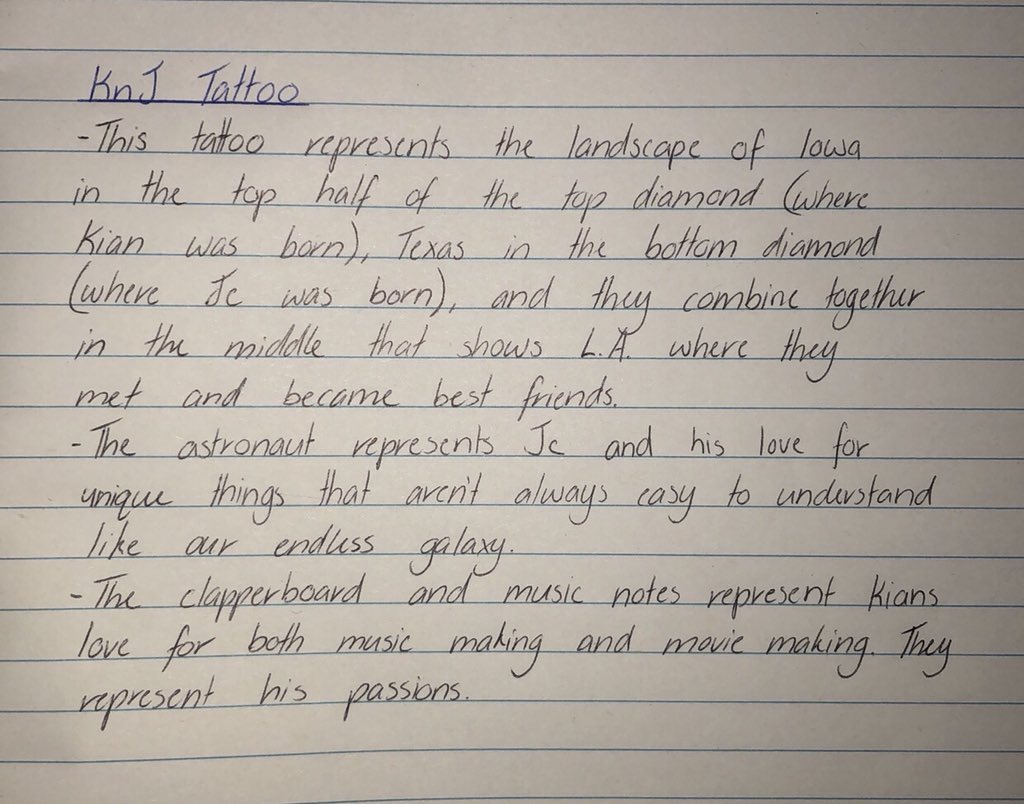 KnJ Tattoo
-This tattoo represents the landscape of Iowa
in the top half of the top diamond (where
Kian was born), Texas in the bottom diamond
(where Jc was born), and they combine together
in the middle that shows L.A. where they
met and became best friends.
-The astronaut represents Jc and his love for
unique things that aren't always easy to understand
like our endless galaxy.
-The clapperboard and music notes represent Kians
love for both music making and movie making. They
represent his passions.